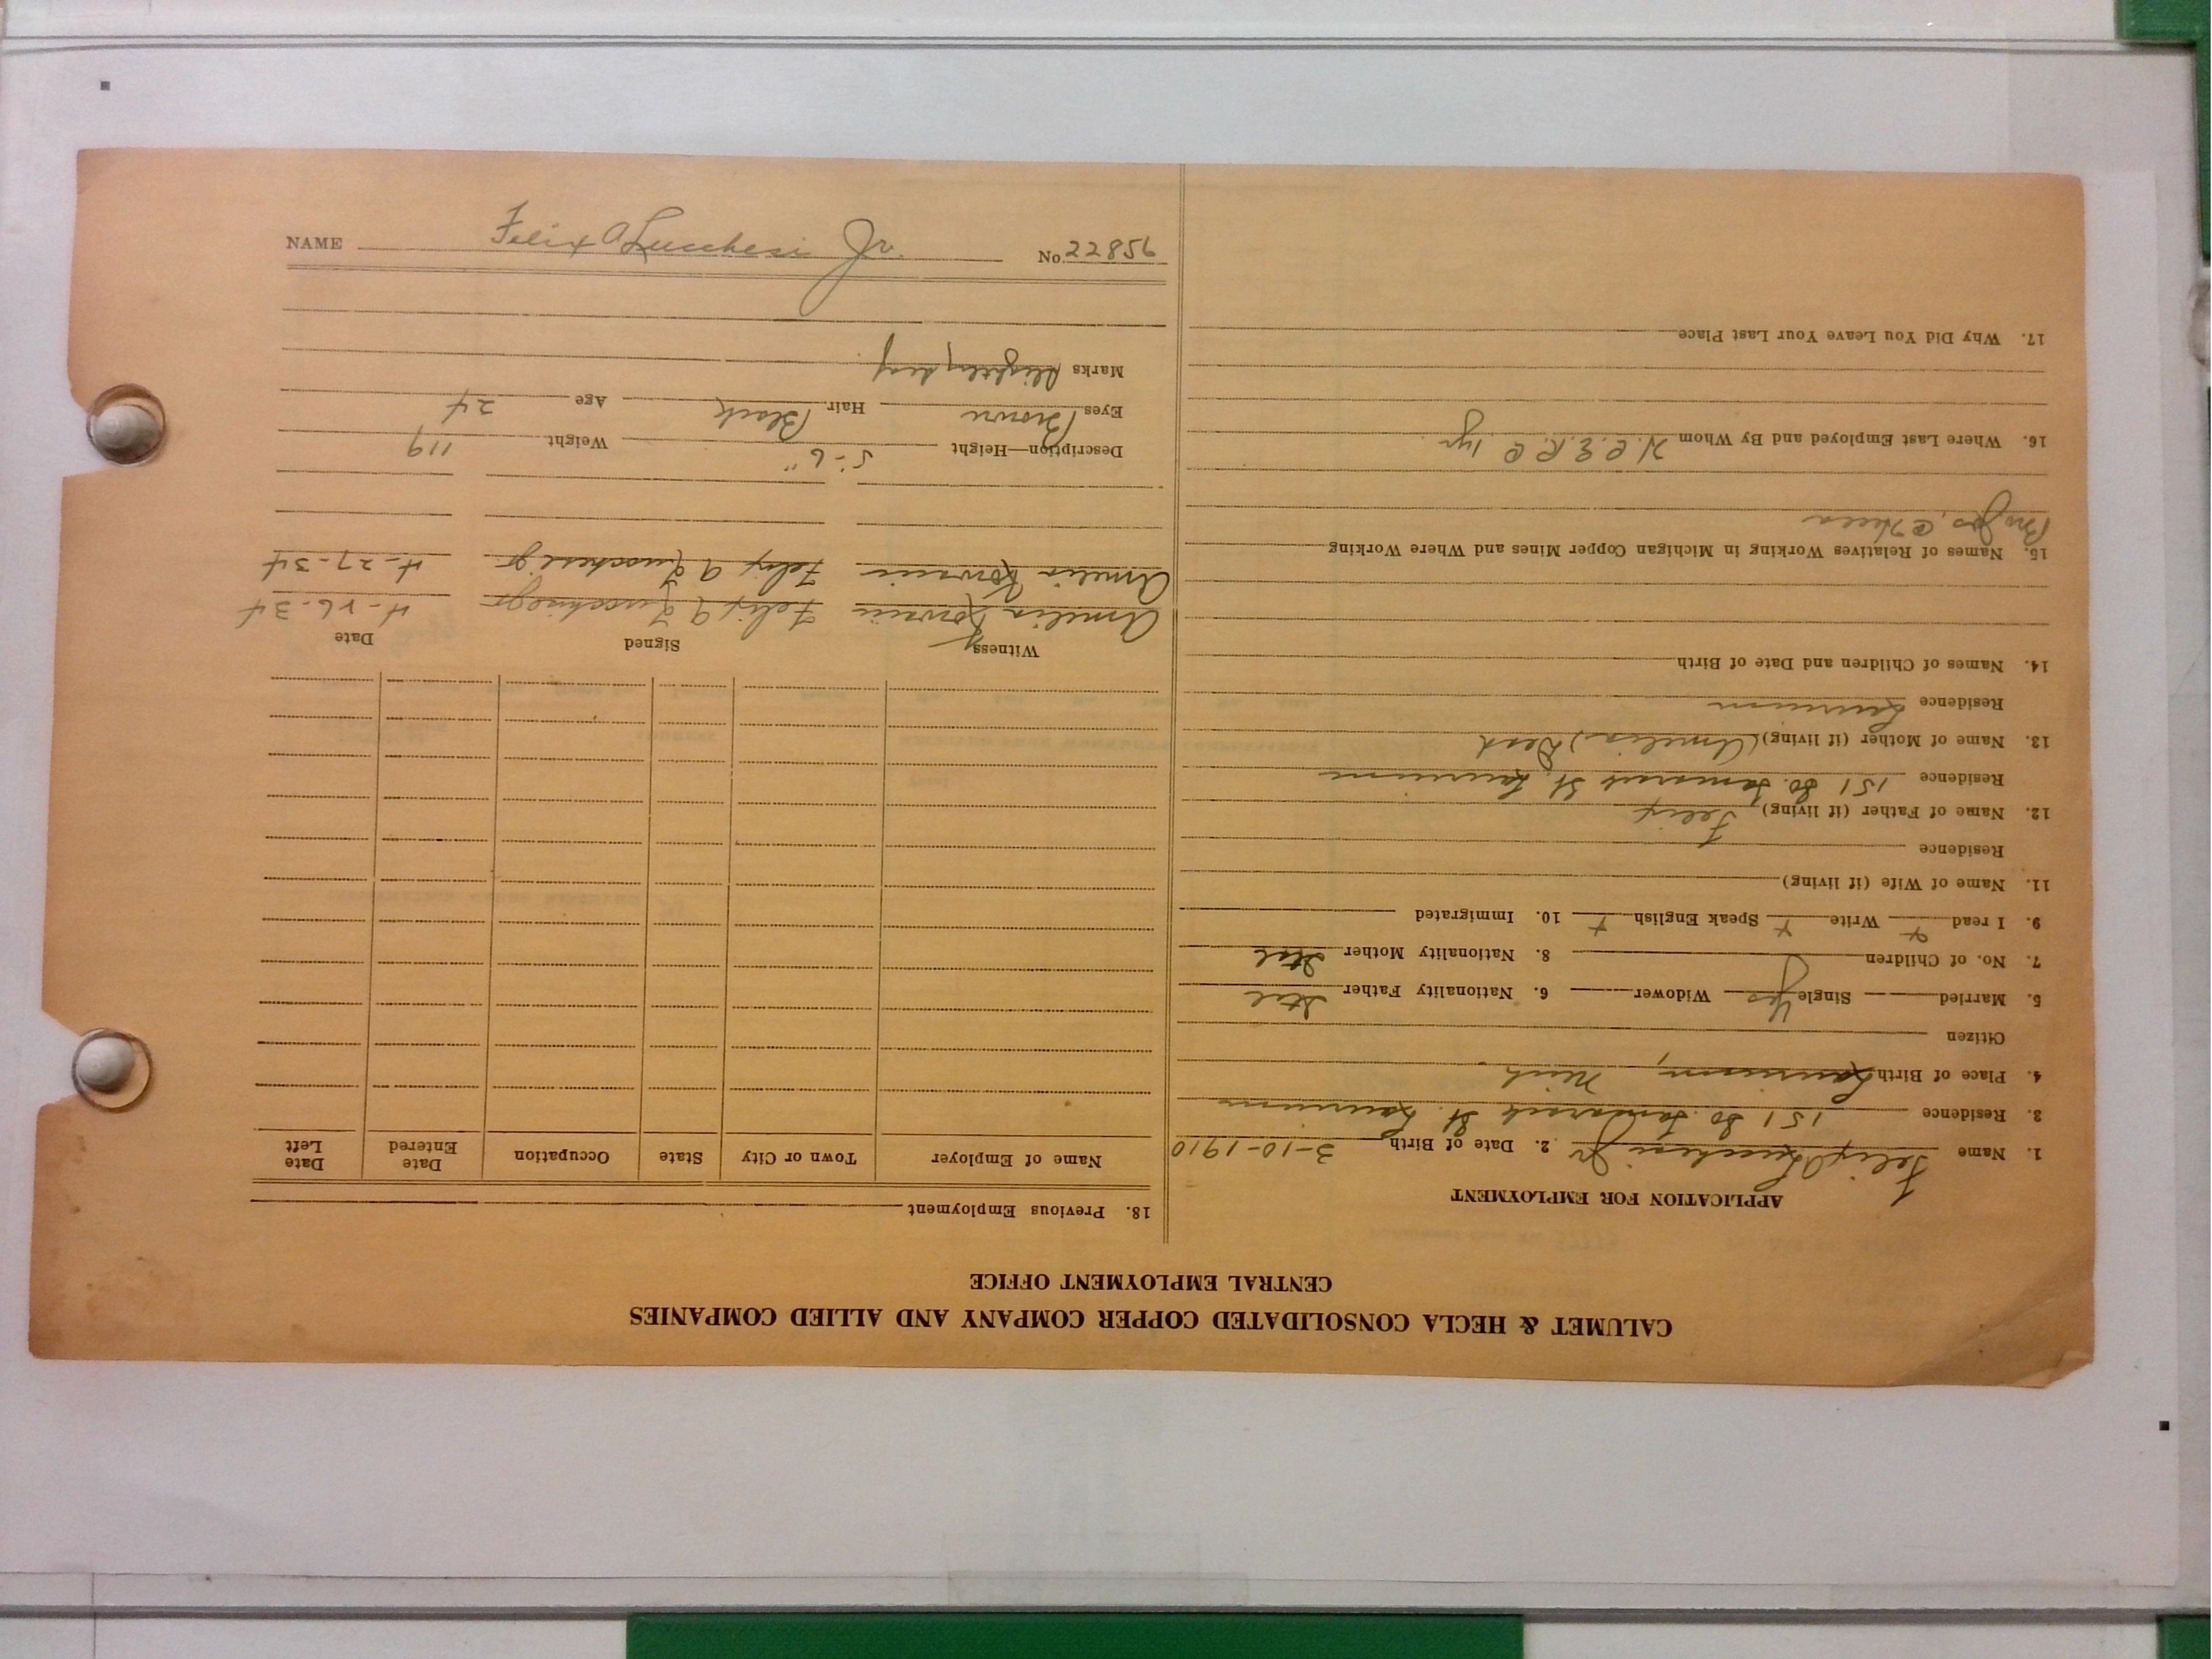 CALUMET & HECLA CONSOLIDATED COPPER COMPANY AND ALLIED COMPANIES
CENTRAL EMPLOYMENT OFFICE
APPLICATION FOR EMPLOYMENT
1. Name Felix A Lucchesi Jr 2. Date of Birth 3-10-1910
3. Residence 151 So. Tamarack St. Laurium
4. Place of Birth Laurium, Mich
Citizen
5. Married Single Yes Widower 6. Nationality Father Ital
7. No. of Children 8. Nationality Mother Ital
9. I read x Write x Speak English x 10. Immigrated
11. Name of Wife (if living)
Residence
12. Name of Father (if living) Felix
Residence 151 So. Tamarack St. Laurium
13. Name of Mother (if living) (Amelia) Dead
Residence Laurium
14. Names of Children and Date of Birth
15. Names of Relatives Working in Michigan Copper Mines and Where Working
Bro Jos, C Hecla
16. Where Last Employed and By Whom H.C.E.R.C 1yr
17. Why Did You Leave Your Last Place
18. Previous Employment
Name of Employer Town or City State Occupation Date Entered Date Left
Witness Signed Date
Amelia Felix A Lucchesi Jr 4-26-34
Amelia Felix A Lucchesi Jr 4-27-34
Description—Height 5'-6" Weight 119
Eyes Brown Hair Black Age 24
Marks Slightly deaf
NAME Felix A Lucchesi Jr. No. 22856